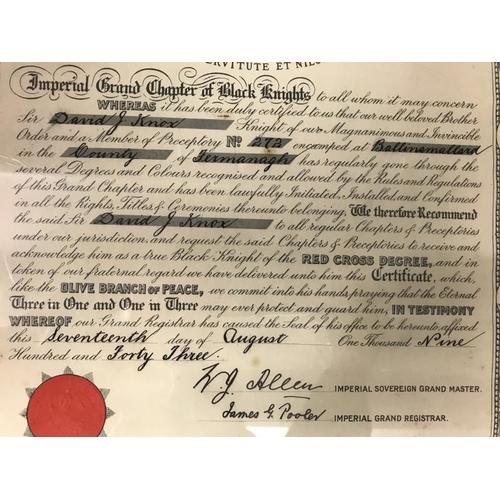 RVITUTE ET NILO
Imperial Grand Chapter of Black Knights to all whom it may concern
WHEREAS it has been duly certified to us that our well beloved Brother
Sir David J Knox Knight of our Magnanimous and Invincible
Order and a Member of Preceptory No 272 encamped at Ballinamallard
in the County of Fermanagh has regularly gone through the
several Degrees and Colours recognised and allowed by the Rules and Regulations
of this Grand Chapter and has been lawfully Initiated, Installed, and Confirmed
in all the Rights, Titles, & Ceremonies thereunto belonging, We therefore Recommend
the said Sir David J Knox to all regular Chapters & Preceptories
under our jurisdiction, and request the said Chapters & Preceptories to receive and
acknowledge him as a true Black Knight of the RED CROSS DEGREE, and in
token of our fraternal regard we have delivered unto him this Certificate, which,
like the OLIVE BRANCH OF PEACE, we commit into his hands, praying that the Eternal
Three in One and One in Three may ever protect and guard him, IN TESTIMONY
WHEREOF our Grand Registrar has caused the Seal of his office to be hereunto affixed
this Seventeenth day of August One Thousand Nine
Hundred and Forty Three.
W. J. Allen IMPERIAL SOVEREIGN GRAND MASTER.
James G. Pooler IMPERIAL GRAND REGISTRAR.